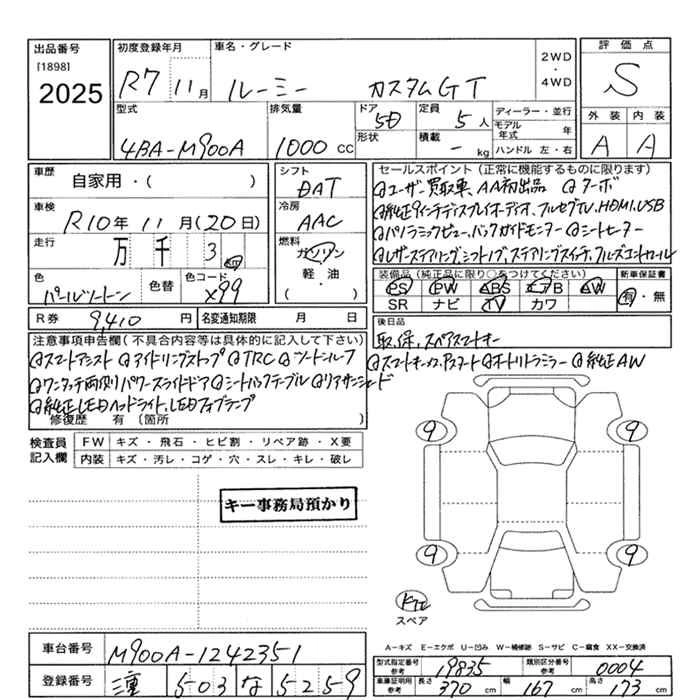 出品番号 初度登録年月 車名・グレード 2WD・4WD 評価点
[1898]
2025 R7年 11月 ルーミー カスタムGT S
型式 排気量 ドア 定員 ディーラー・並行 外装 内装
4BA-M900A 1000 CC 5D 5人 モデル年式 年 A A
形状 積載 - kg ハンドル 左・右
車歴 自家用・( ) シフト DAT セールスポイント(正常に機能するものに限ります)
@ユーザー買取車、AA初出品 @ターボ
車検 R10年 11月(20日) 冷房 AAC @純正9インチディスプレイオーディオ、フルセグTV、HDMI、USB
@パノラミックビュー、バックガイドモニター @シートヒーター
走行 万 千 3 km 燃料 ガソリン @レザーステアリング、シフトノブ、ステアリングスイッチ、クルーズコントロール
軽・油
( )
色 パールツートン 色替 色コード X99 装備品(純正品に限り○をつけてください) 新車保証書
PS PW ABS エアB AW 有・無
SR ナビ TV カワ
R券 9,410 円 名変通知期限 月 日 後日品
取、保、スペアスマートキー
注意事項申告欄(不具合内容等は具体的に記入して下さい)
@スマートアシスト @アイドリングストップ @TRC @ツートンルーフ @スマートキー2ヶ、Pスタート @オートリトラミラー @純正AW
@ワンタッチ両側パワースライドドア @シートバックテーブル @リアサンシェード
@純正LEDヘッドライト、LEDフォグランプ
修復歴 有(箇所 )
検査員記入欄 FW キズ・飛石・ヒビ割・リペア跡・X要
内装 キズ・汚レ・コゲ・穴・スレ・キレ・破レ
9 9
キー事務局預かり
9 9
スペア
A-キズ E-エクボ U-凹み W-補修跡 S-サビ C-腐食 XX-交換済
車台番号 M900A-1242351 型式指定番号 参考 19835 類別区分番号 参考 0004
登録番号 三重 503 な 5259 車庫証明用 参考 長さ 370 cm 幅 167 cm 高さ 173 cm